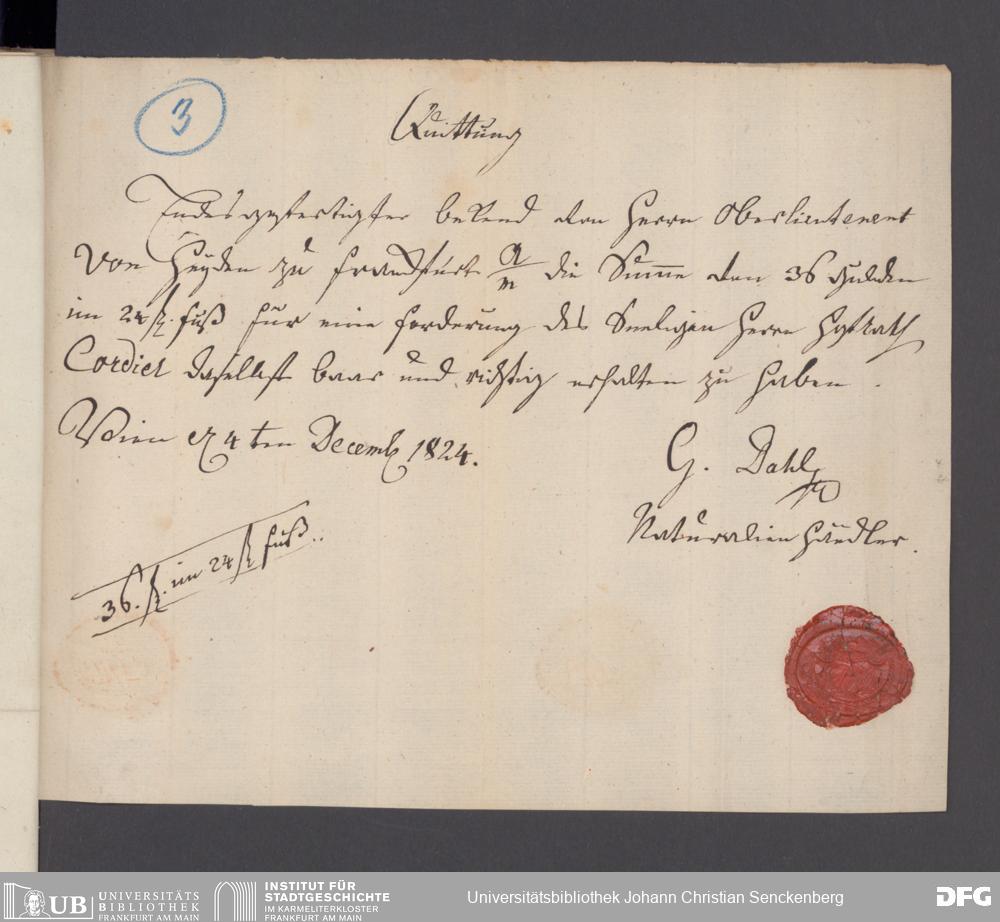 3
Quittung
Endesgefertigter bekend von Herrn Oberlieutenent
von Heyden zu Frankfurt a/m die Summe von 36 Gulden
im 24 fl. Fuß für eine Forderung des Seeligen Herrn Hofrath
Cordier daselbst baar und richtig erhalten zu haben.
Wien d 4ten Decemb 1824.
G. Dahl
Naturalien Händler.
36. fl. im 24 fl Fuß..
UB UNIVERSITÄTS
BIBLIOTHEK
FRANKFURT AM MAIN
INSTITUT FÜR
STADTGESCHICHTE
IM KARMELITERKLOSTER
FRANKFURT AM MAIN
Universitätsbibliothek Johann Christian Senckenberg
DFG